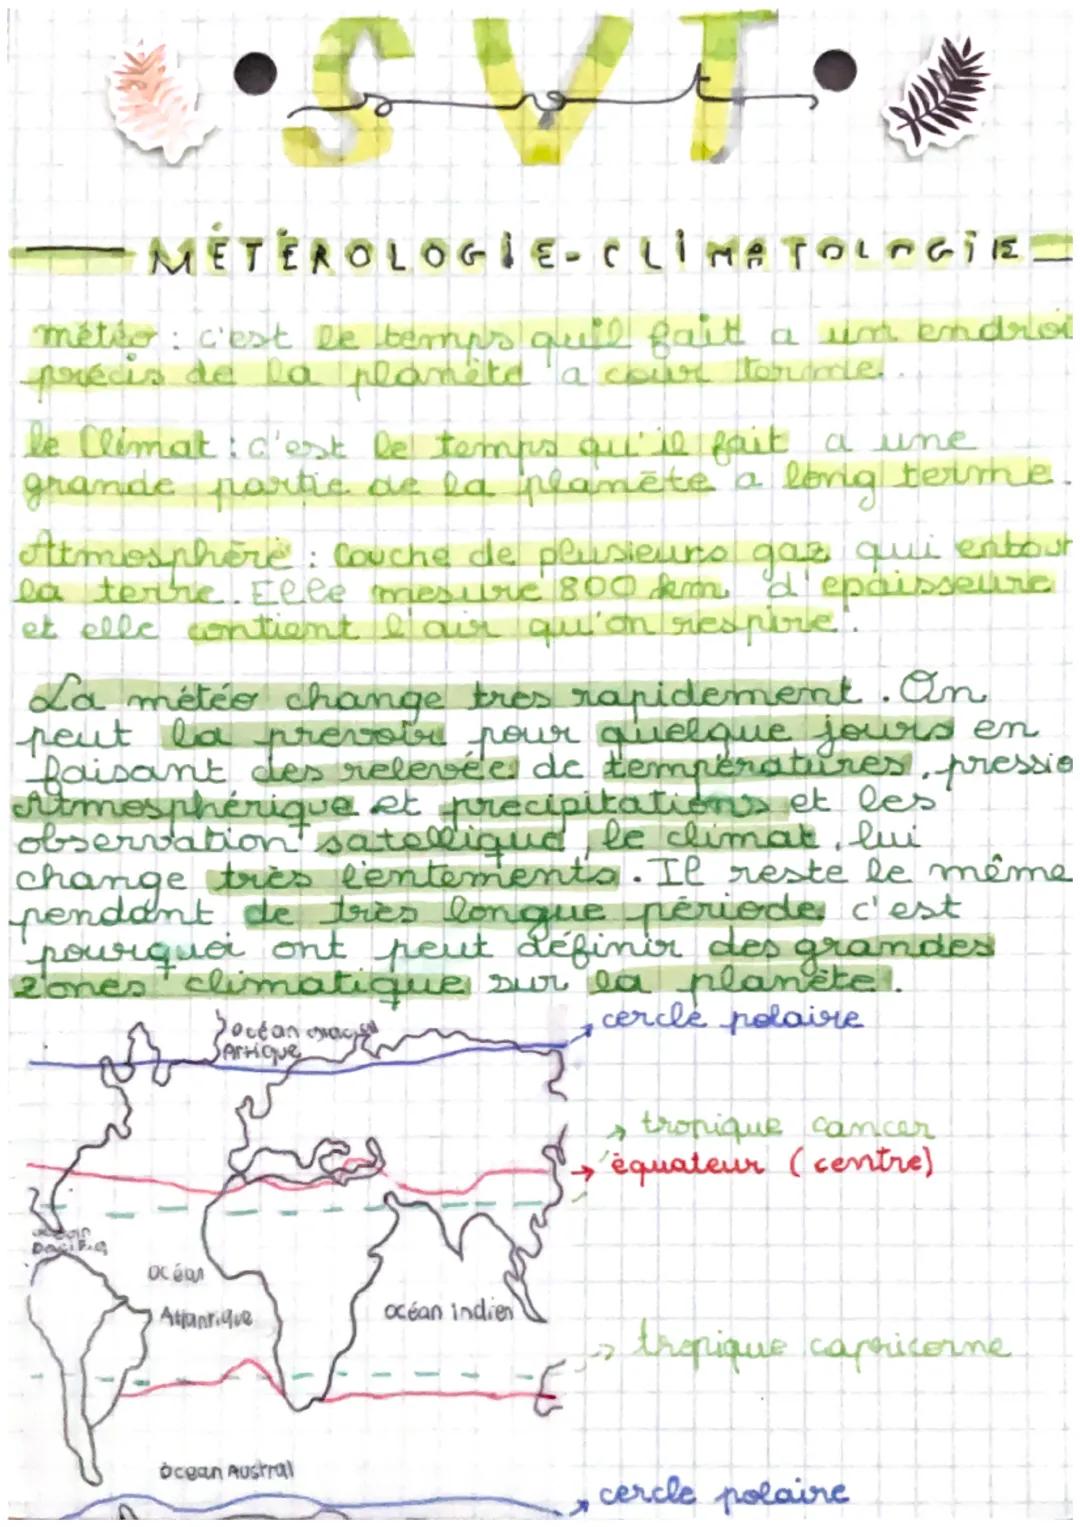 SVT
svt
MÉTÉROLOGIE-CLIMATOLOGIE
météo : c'est le temps qu'il fait a un endroi
précis de la planète a cour terme.
le Climat : c'est le temps qu'il fait a une
grande partie de la planète a long terme.
Atmosphère : Couche de plusieurs gaz qui entour
la terre. Elle mesure 800 km d'epaisseure
et elle contient l'air qu'on respire.
La météo change tres rapidement. On
peut la prevoir pour quelque jours en
faisant des relevées de températures, pressio
Atmosphérique et précipitations et les
observation satellique, le climat, lui
change très lentements. Il reste le même
pendant de très longue période c'est
pourquoi ont peut définir des grandes
zones climatique sur la planète.
cercle polaire
océan glacial
Artique
tropique cancer
équateur (centre)
océan
Pacifiq
océan
Atlantique
océan indien
tropique capricorne
océan Austral
cercle polaire